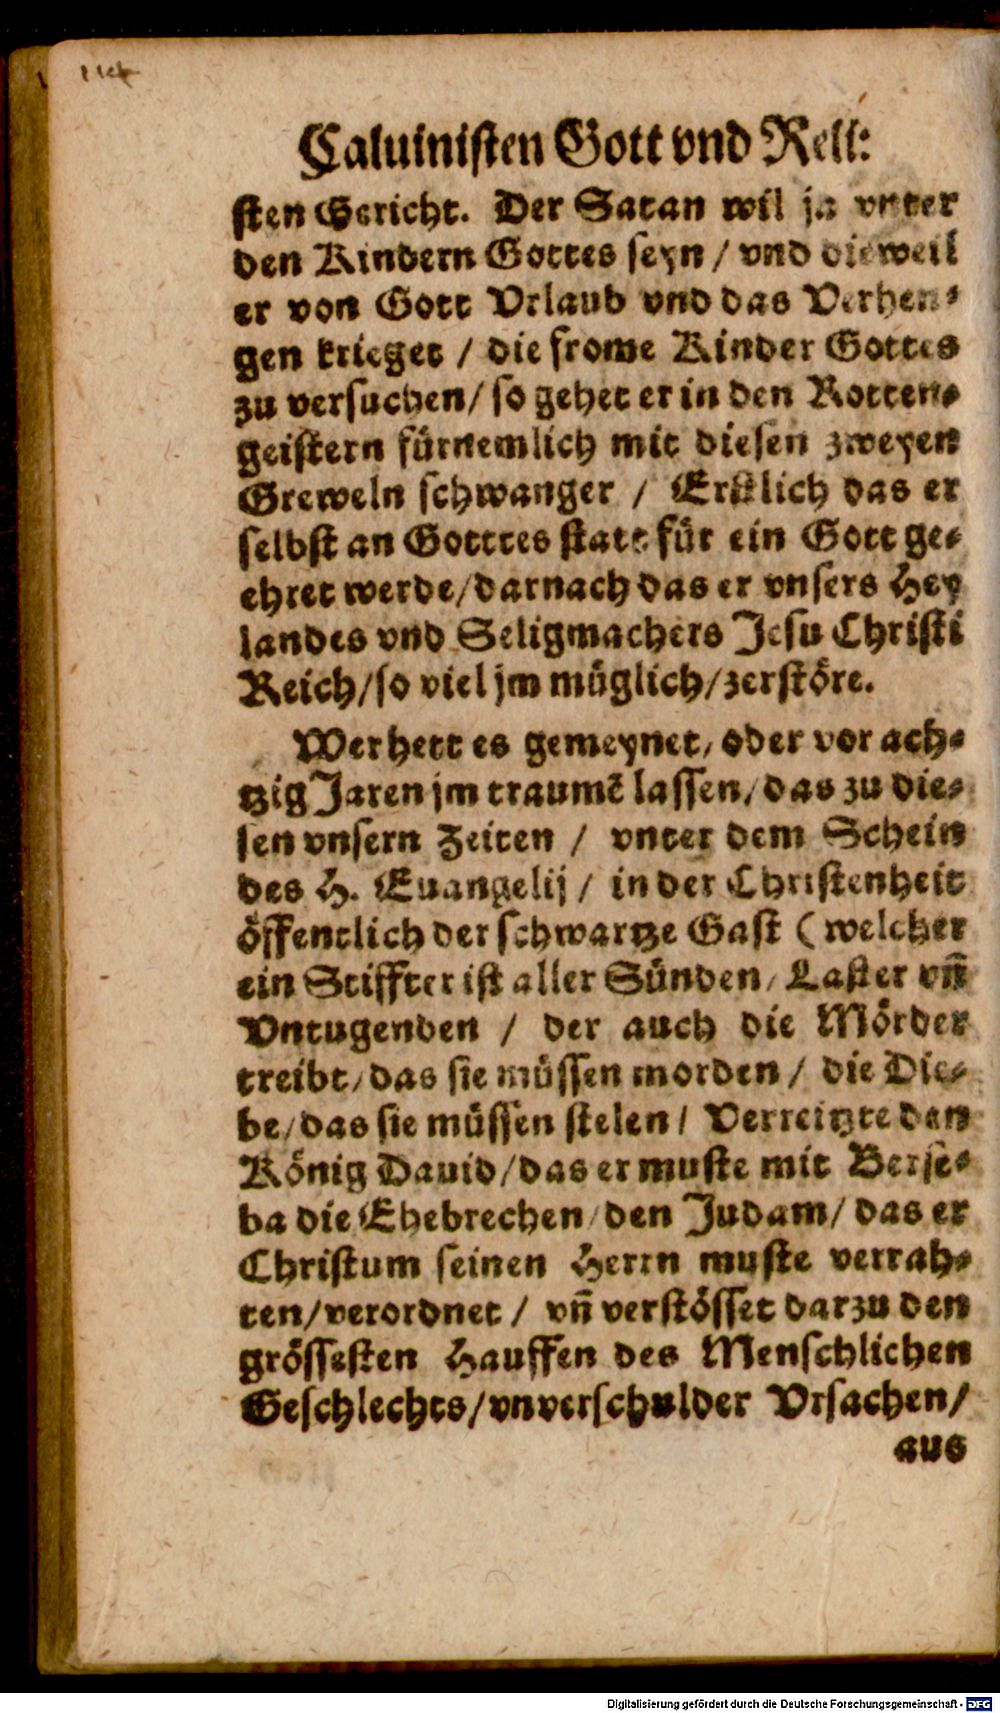 114
Caluinisten Gott vnd Reli:
sten Gericht. Der Satan wil ja vnter
den Kindern Gottes seyn / vnd dieweil
er von Gott Vrlaub vnd das Verhen⸗
gen krieget / die frome Kinder Gottes
zu versuchen/ so gehet er in den Rotten⸗
geistern fürnemlich mit diesen zweyen
Greweln schwanger / Erstlich das er
selbst an Gotttes statt für ein Gott ge⸗
ehret werde/darnach das er vnsers Hey
landes vnd Seligmachers Jesu Christi
Reich/so viel jm müglich/zerstöre.
Wer hett es gemeynet, oder vor ach⸗
tzig Jaren jm traumē lassen/das zu die⸗
sen vnsern Zeiten / vnter dem Schein
des H. Euangelij / in der Christenheit
öffentlich der schwartze Gast ( welcher
ein Stiffter ist aller Sünden/ Laster vn̄
Vntugenden / der auch die Mörder
treibt/das sie müssen morden / die Die⸗
be/das sie müssen stelen / Verreitzte den
König Dauid/das er muste mit Berse⸗
ba die Ehebrechen/den Judam/ das er
Christum seinen Herrn muste verrah⸗
ten/verordnet / vn̄ verstösset darzu den
grössesten Hauffen des Menschlichen
Geschlechts/vnverschulder Vrsachen/
aus
Digitalisierung gefördert durch die Deutsche Forschungsgemeinschaft - DFG